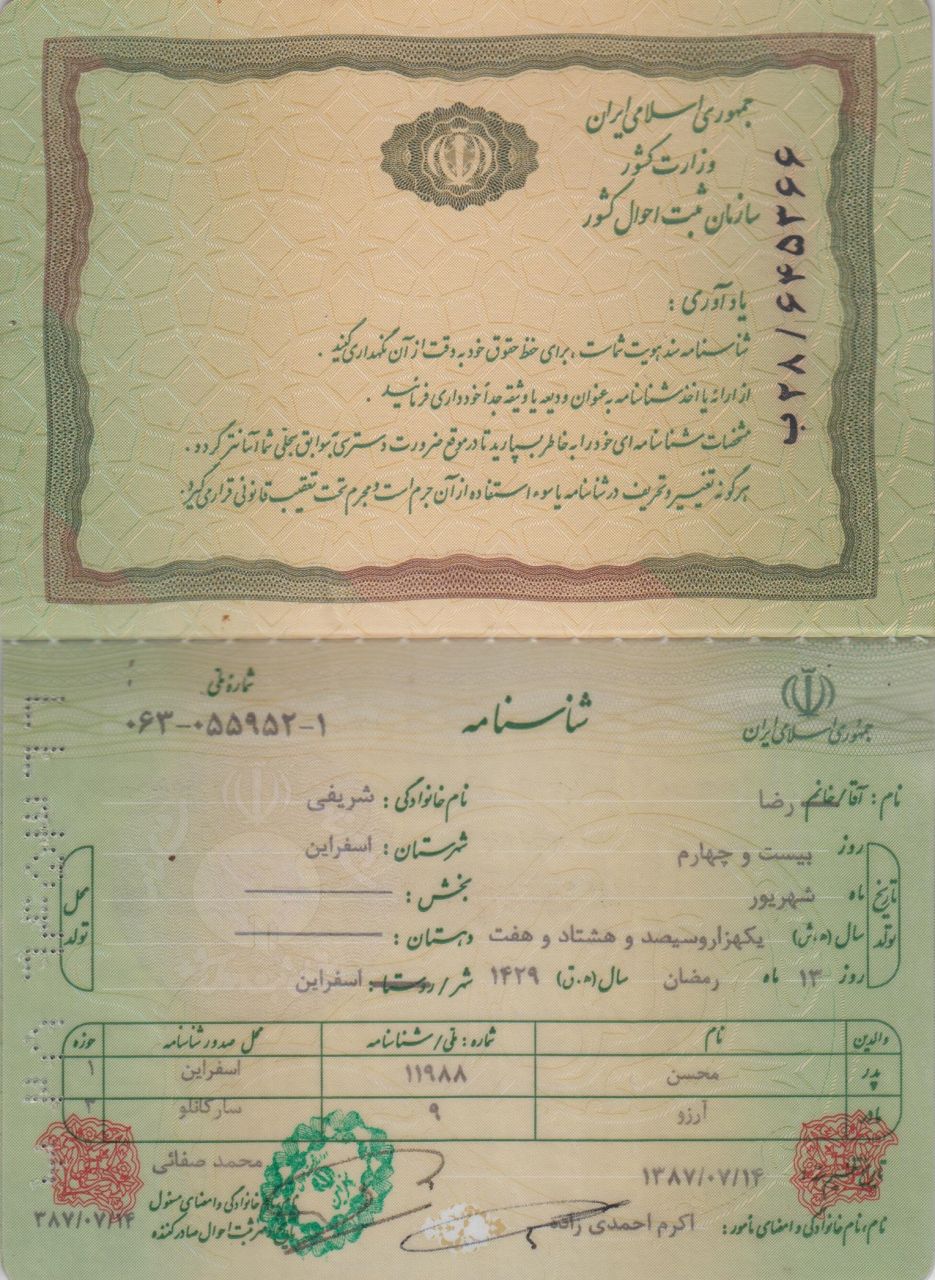 جمهوری اسلامی ایران
وزارت کشور
سازمان ثبت احوال کشور
ب۲۸/۶۴۵۲۶۶
یادآوری :
شناسنامه سند هویت شماست ، برای حفظ حقوق خود به دقت از آن نگهداری کنید .
از ارائه یا اخذ شناسنامه به عنوان ودیعه یا وثیقه جداً خودداری فرمائید .
مشخصات شناسنامه ای خود را به خاطر بسپارید تا در موقع ضرورت دسترسی به سوابق سجلی شما آسانتر گردد .
هرگونه تغییر و تحریف در شناسنامه یا سوء استفاده از آن جرم است و مجرم تحت تعقیب قانونی قرار می گیرد.
جمهوری اسلامی ایران
شناسنامه
شماره ملی
۰۶۳-۰۵۵۹۵۲-۱
نام : آقا/خانم رضا نام خانوادگی : شریفی
تاریخ تولد روز بیست و چهارم شهرستان : اسفراین محل تولد
ماه شهریور بخش :
سال (ه.ش) یکهزاروسیصد و هشتاد و هفت دهستان :
روز ۱۳ ماه رمضان سال (ه.ق) ۱۴۲۹ شهر/روستا : اسفراین
والدین نام شماره : ملی/شناسنامه محل صدور شناسنامه حوزه
پدر محسن ۱۱۹۸۸ اسفراین ۱
مادر آرزو ۹ سارکانلو ۳
۱۳۸۷/۰۷/۱۴ محمد صفائی
نام، نام خانوادگی و امضای مأمور : اکرم احمدی زاده
خانوادگی و امضای مسئول
ثبت احوال صادرکننده
۳۸۷/۰۷/۱۴